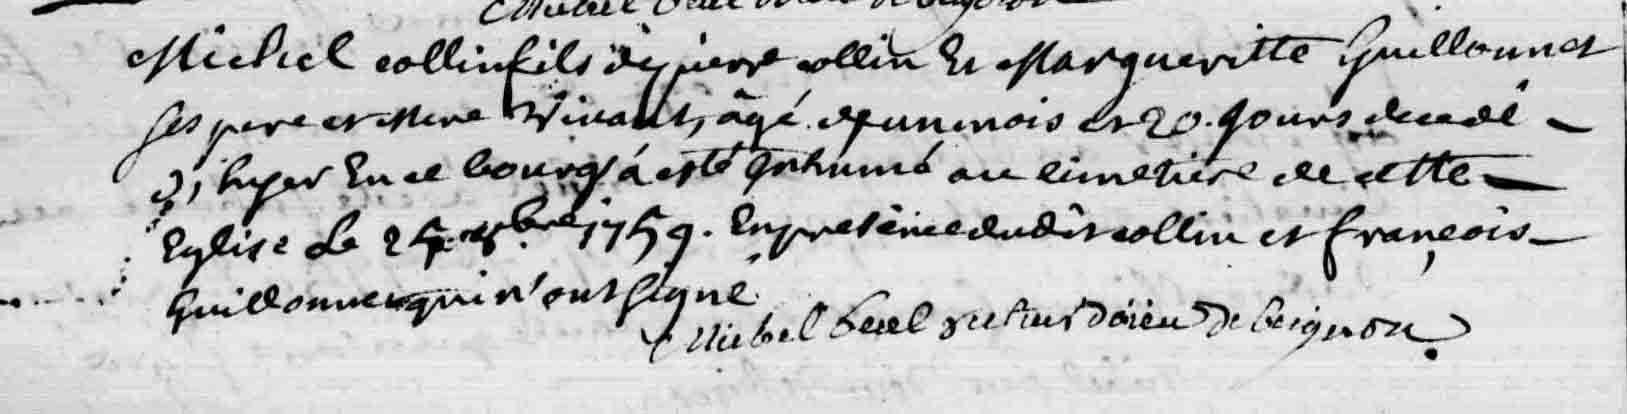 Michel collin fils de pierre collin Et Margueritte Guillonnet
ses pere et Mere Vivants, âgé d'un mois et 20. Jours decedé -
d'hyer En ce bourg á esté Inhumé au cimetiere de cette -
Eglise Le 25 1759. En presence dudit collin et françois -
Guillonnet qui n'ont signé
Michel recteur doïen de beignon.